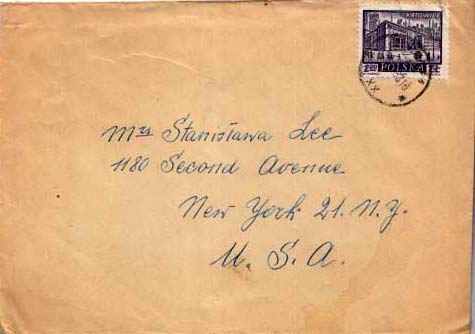 KATOWICE
POLSKA
Mrs Stanisława Lee
1180 Second Avenue
New York 21. N.Y.
U. S. A.